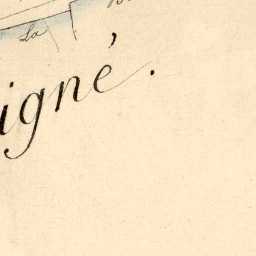 La
igné.